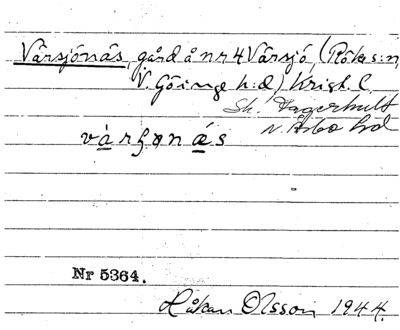 Vårsjönäs, gård å nr 4 Vårsjö, (Röke s:n,
V. Göinge h:d) Krist. l.
Sk. Fagerhult
N. Åsbo hd
Nr 5364.
Håkan Olsson 1944.